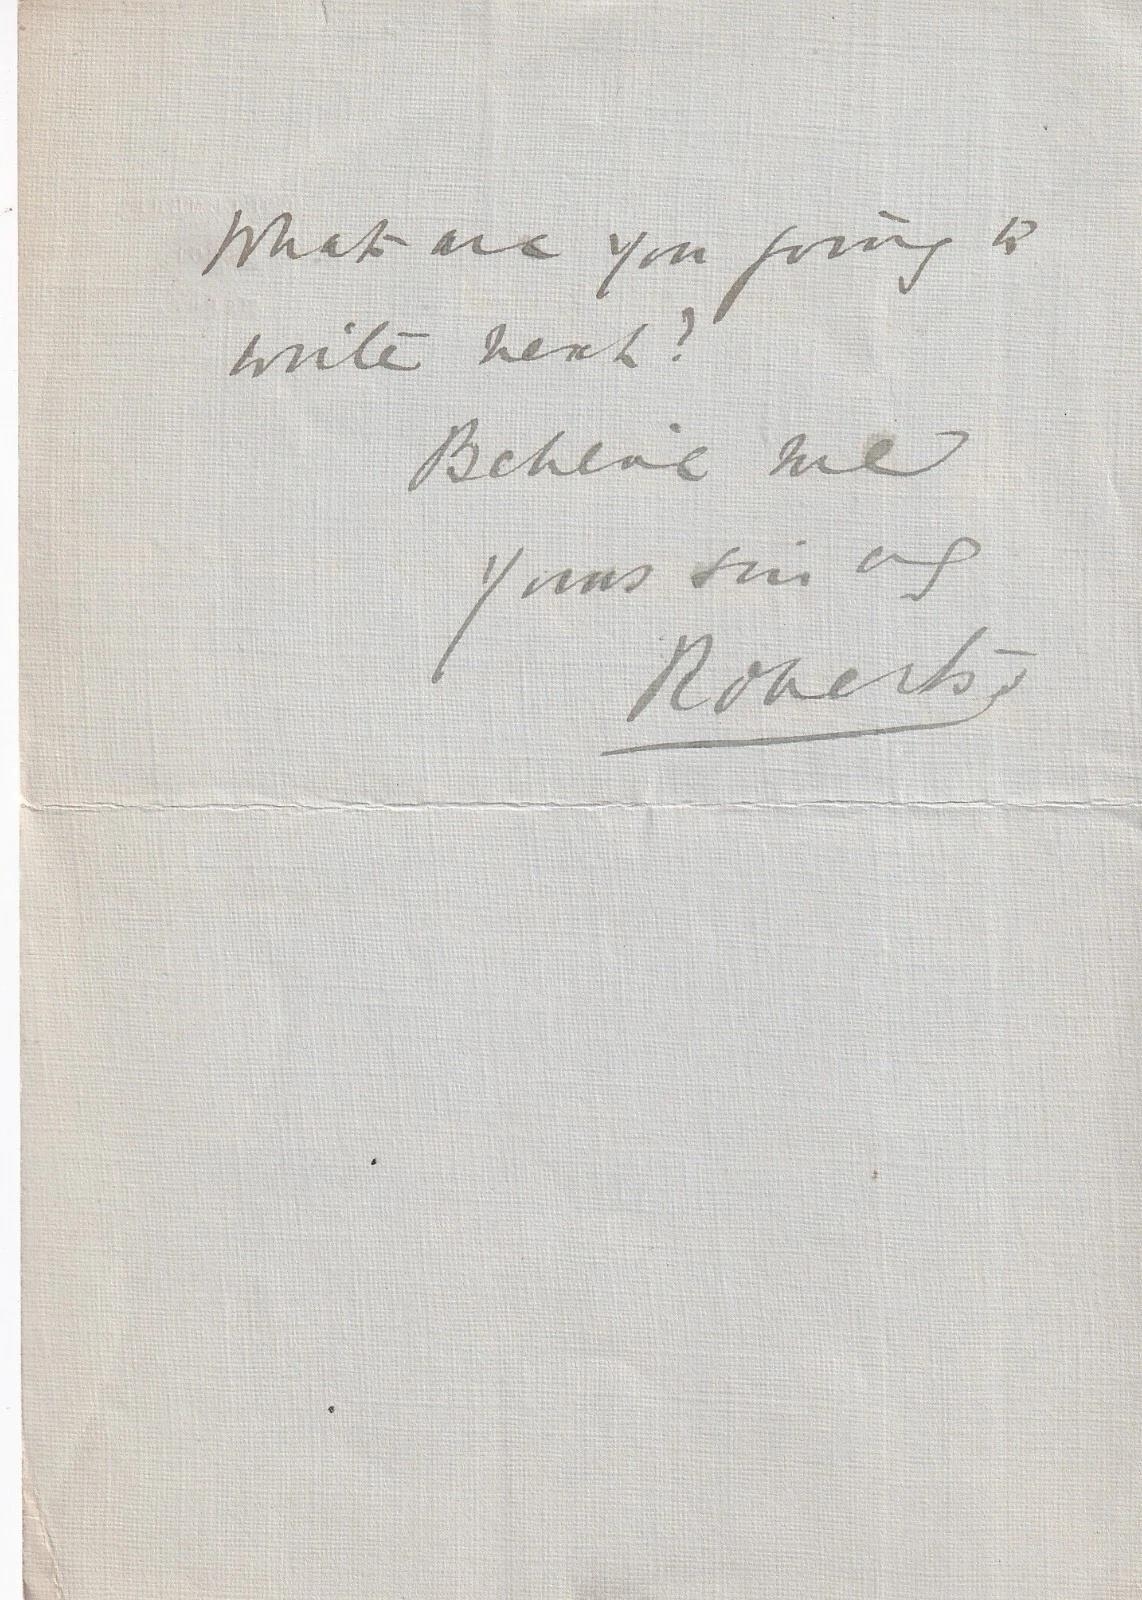 What are you going to
write next?
Believe me
Yours sincerely
Roberts